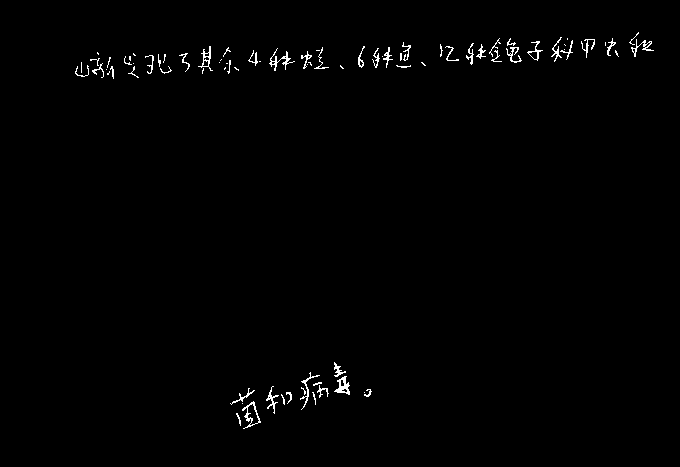 新发现了其余4种蛙、6种鱼、12种金龟子科甲虫和
菌和病毒。